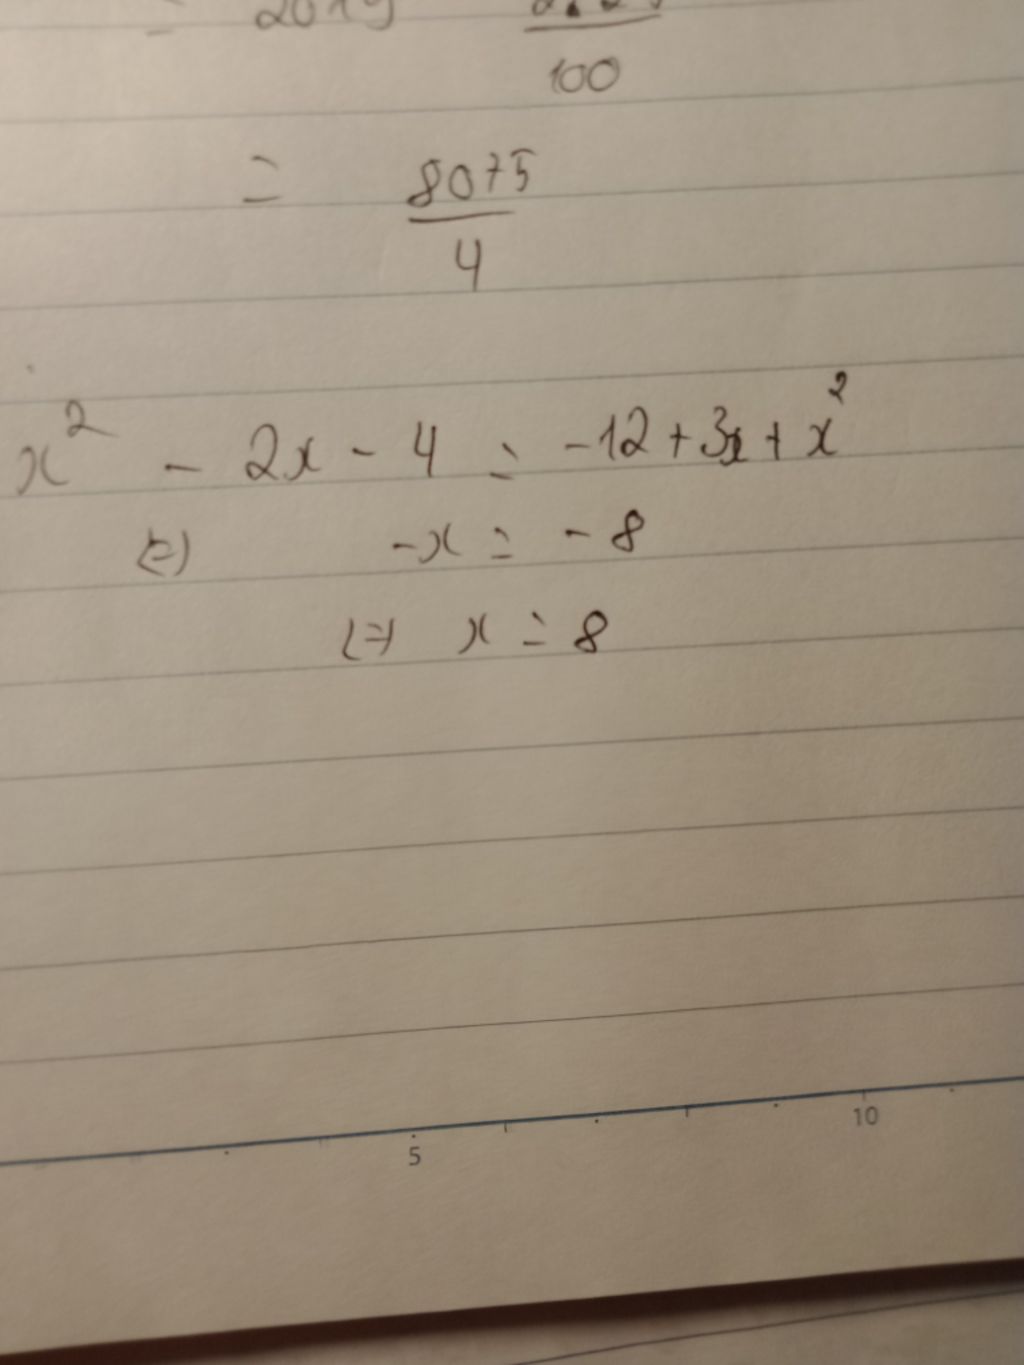 = 2019
100
= 8075
4
x² - 2x - 4 = -12 + 3x + x²
(=) -x = -8
(=) x = 8
5 10